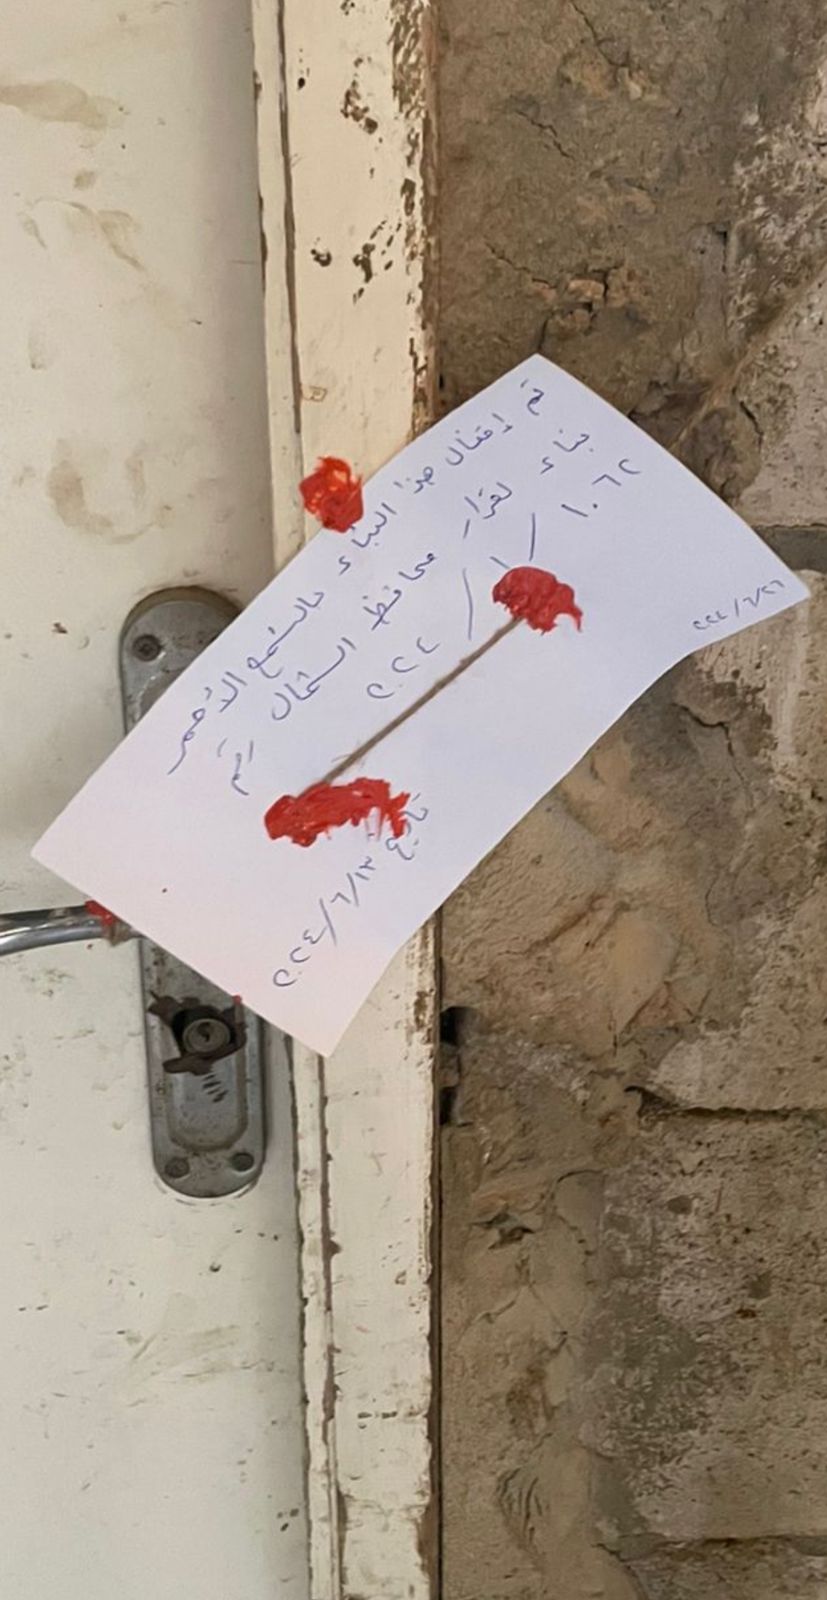 تم إقفال هذا البناء بالشمع الأحمر
بناء لقرار محافظ الشمال رقم
١٠٦٢ / ١ / ٢٠٢٤
تاريخ ٢٠٢٤/٦/١٣